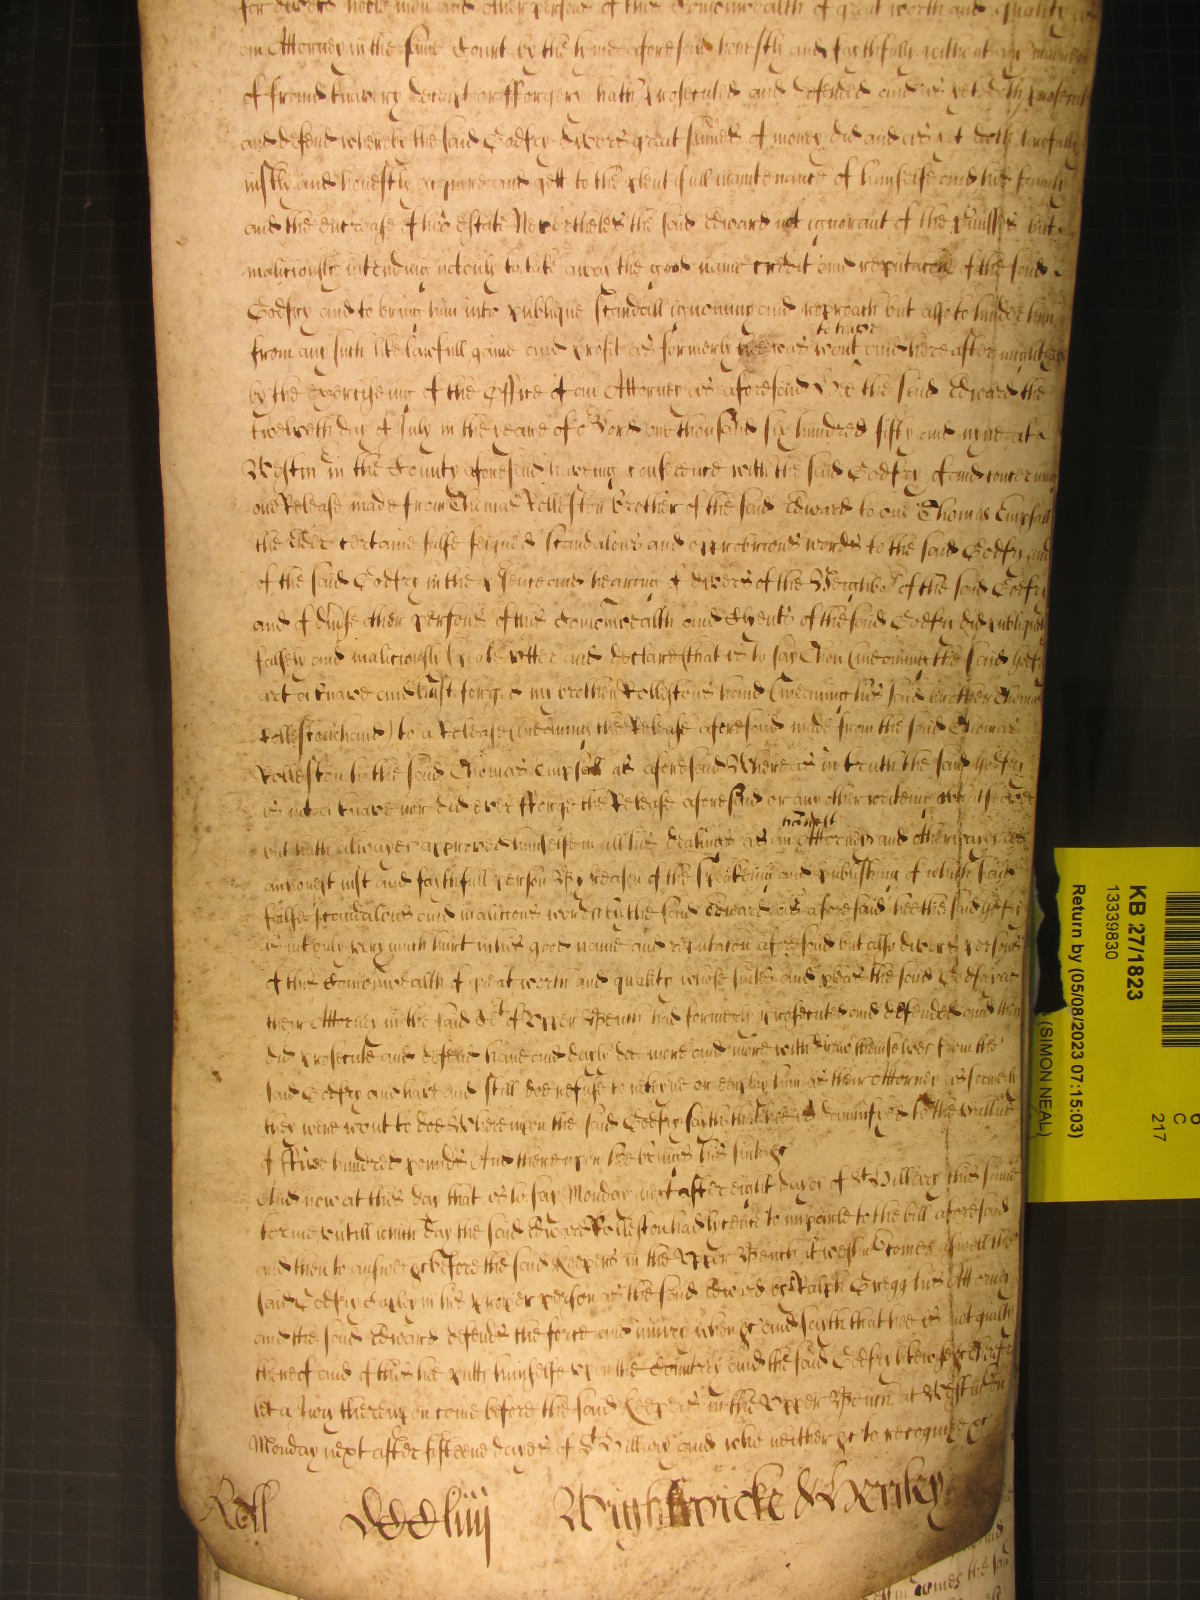 for divers noble men and other persons of this Comonwealth of great worth and quality as
an Attorney in the same Court by the tyme aforesaid honestly and faithfully without any manner
of fraud knavery deceipt or fforgery hath prosecuted and defended and as yet doth prosecute
and defend whereby the said Godfry divers great summes of money did and as yet doth lawfully
iustly and honestly acquire and gett to the plentifull maintenance of himselfe and his family
and the encrease of his estate Neverthelesse the said Edward not ignorant of the pmisses but
maliciously intending not only to take away the good name creditt and reputacon of the said
Godfry and to bring him into publique scandall ignominy and reproach but also to hinder him
from any such like lawfull gaine and profitt as formerly hee was wont to have and hereafter might have
by the exerciseing of the Office of an Attorney as aforesaid Hee the said Edward the
twelveth day of July in the yeare of or Lord one thousand six hundred fifty and nyne att
Westm in the County aforesaid haveing conference with the said Godfry of and concerning
one Release made from Thomas Rolleston brother of the said Edward to one Thomas Empsall
the elder certaine false feigned scandalous and opprobrious words to the said Godfry and
of the said Godfry in the psence and hearing of divers of the Neighbors of the said Godfry
and of diverse other persons of this Comonwealth and Clyents of the said Godfry did publiquely
falsely and maliciously speake utter and declare (that is to say) Thou (meaning the said Godfry)
art a knave and hast forged my brother Rollestons hand (meaning his said brother Thomas
Rollestons hand) to a Release (meaning the Release aforesaid made from the said Thomas
Rolleston to the said Thomas Empsall as aforesaid Whereas in truth the said Godfry
is not a knave nor did ever fforge the Release aforesaid or any other writeing whatsoever
but hath alwayes approved himselfe in all his dealings as an honest Attorney and otherwayes as
an honest iust and faithfull person By reason of the speakeing and publishing of which said
false scandalous and malicious words by the said Edward as aforesaid hee the said Godfry
is not only very much hurt in his good name and reputacon aforesaid but also divers persons
of this Comonwealth of great worth and quality whose suites and pleas the said Godfry as
their Attorney in the said Ct of Upper Bench had formerly prosecuted and defended and then
did prosecute and defend have and dayly doe more and more withdraw themselves from the
said Godfry and have and still doe refuse to reteyne or employ him as their Attorney as formerly
they were wont to doe Whereupon the said Godfry saith that hee is damnifyed to the vallue
of ffive hundred pounds And thereupon hee brings his suite &c
And now at this day that is to say Monday next after eight dayes of St Hillary this same
terme untill which day the said Edward Rolleston had lycence to imparle to the bill aforesaid
and then to answer &c before the said Keepers in the Upper Bench att Westm comes aswell the
said Godfry in his proper person as the said Edward by Ralph Gregg his Attorney
and the said Edward defends the force and iniury when &c and saith that hee is not guilty
thereof and of this hee putts himselfe upon the Countrey and the said Godfry likewise &c Therefore
let a Jury thereupon come before the said Keepers in the Upper Bench at Westm on
Monday next after fifteene dayes of St Hillary and who neither &c to recognize &c
Roll
Wightwicke & Henley
KB 27/1823
13339830
Return by (05/08/2023 07:15:03)
(SIMON NEAL)
6
C
217